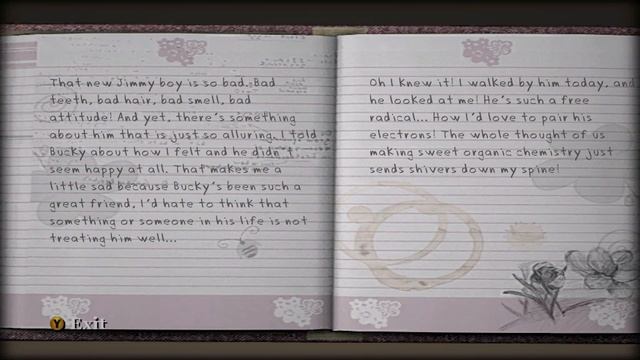 That new Jimmy boy is so bad. Bad
teeth, bad hair, bad smell, bad
attitude! And yet, there's something
about him that is just so alluring. I told
Bucky about how I felt and he didn't
seem happy at all. That makes me a
little sad because Bucky's been such a
great friend, I'd hate to think that
something or someone in his life is not
treating him well...
Oh I knew it! I walked by him today, and
he looked at me! He's such a free
radical... How I'd love to pair his
electrons! The whole thought of us
making sweet organic chemistry just
sends shivers down my spine!
Y Exit